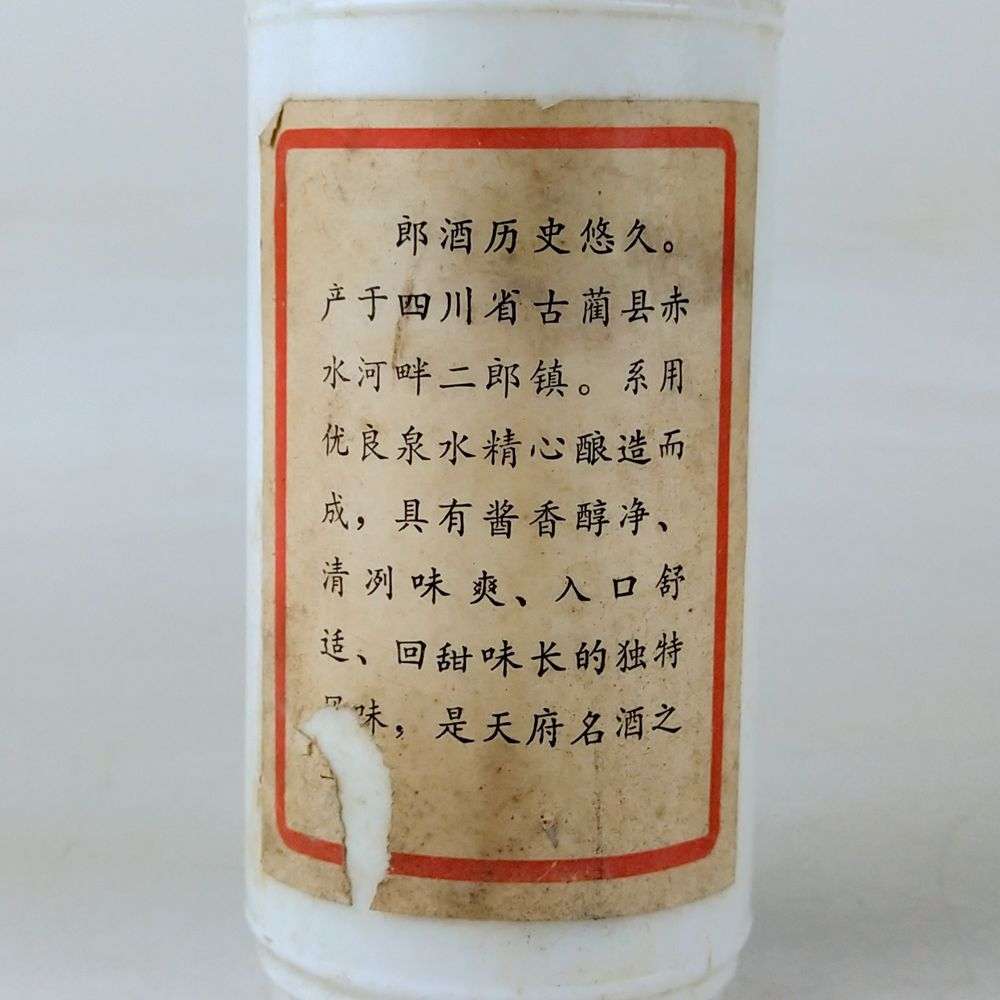 郎酒历史悠久。
产于四川省古蔺县赤
水河畔二郎镇。系用
优良泉水精心酿造而
成，具有酱香醇净、
清冽味爽、入口舒
适、回甜味长的独特
味，是天府名酒之
一